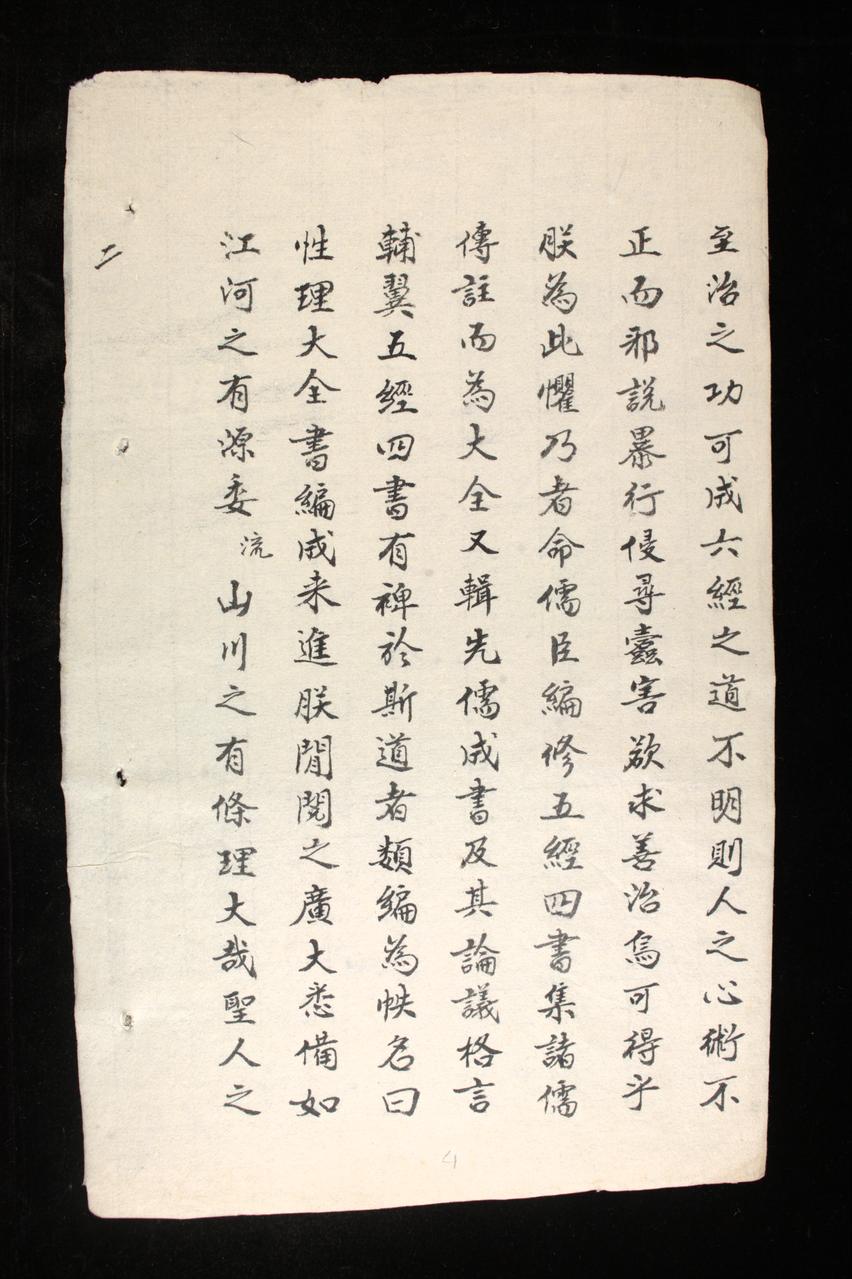 至治之功可成六經之道不明則人之心術不
正而邪說暴行侵尋蠹害欲求善治烏可得乎
朕為此懼乃者命儒臣編修五經四書集諸儒
傳註而為大全又輯先儒成書及其論議格言
輔翼五經四書有裨於斯道者類編為帙名曰
性理大全書編成来進朕閒閱之廣大悉備如
江河之有源委流山川之有條理大哉聖人之
二
4